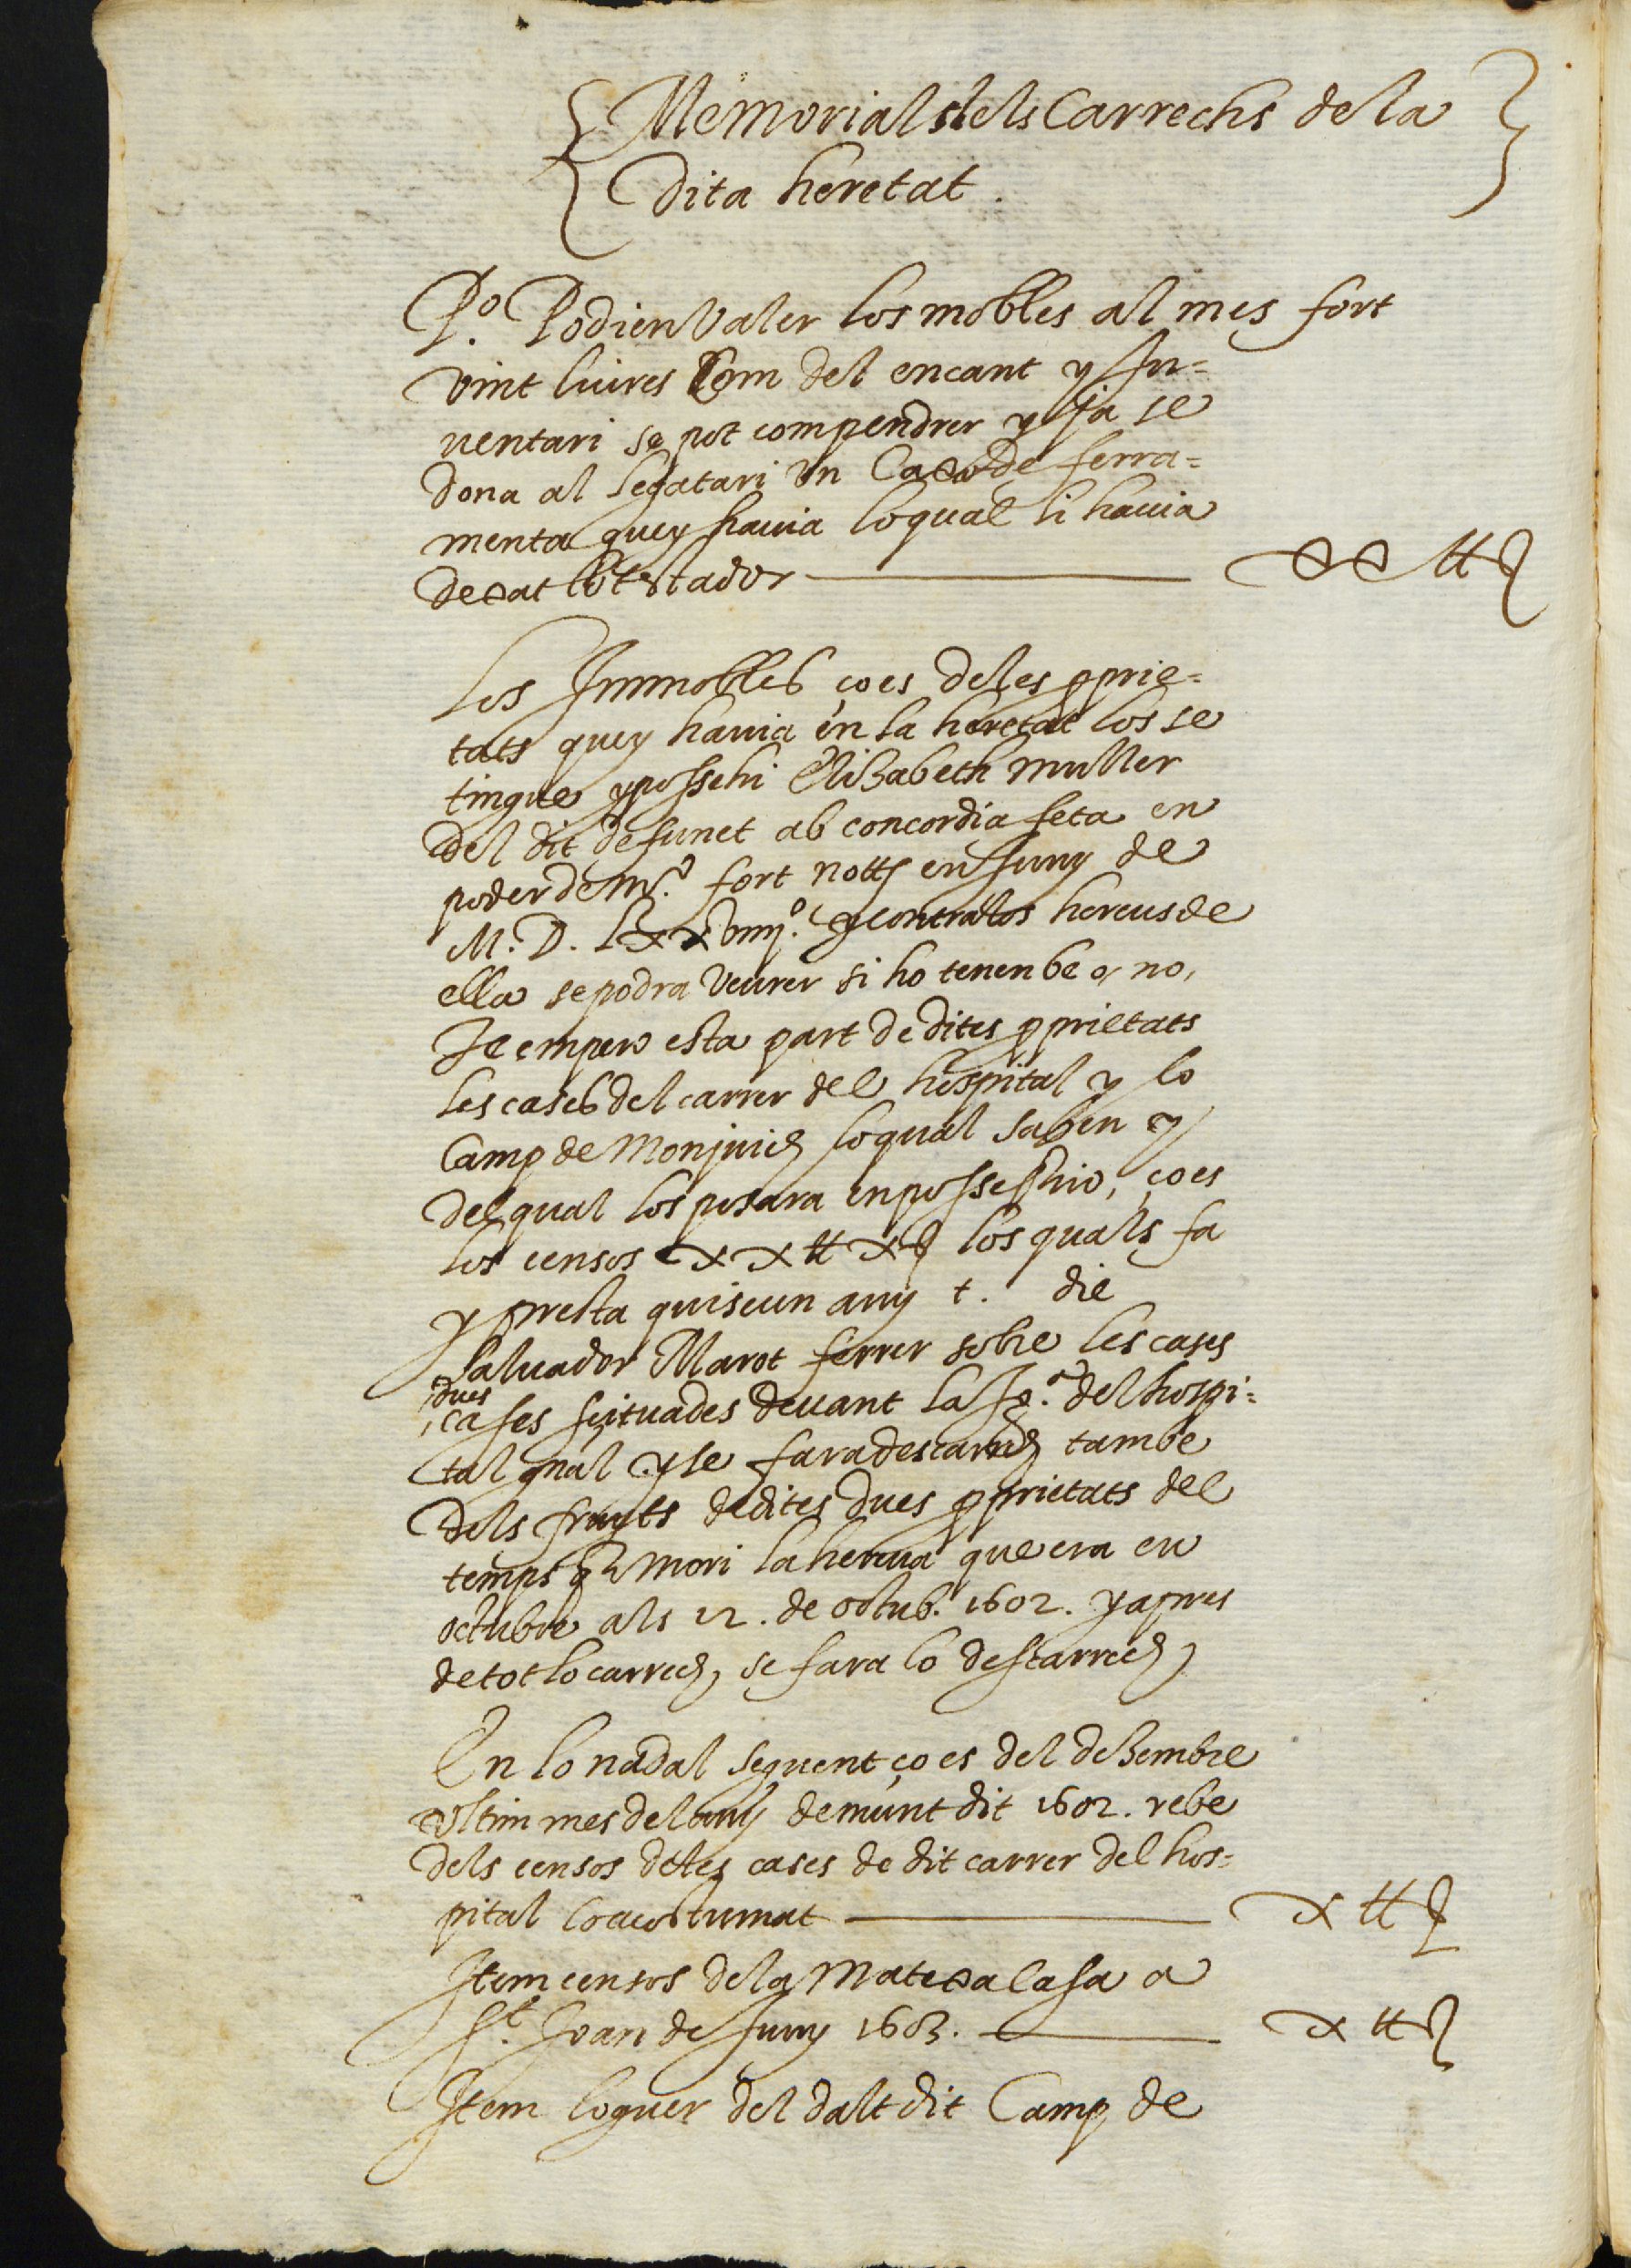 Memorial dels Carrechs de la
dita heretat.
Pº. Podien valer los mobles al mes fort
vint liures Com del encant y In=
uentari se pot compendrer y ja se
dona al legatari un Caxo de ferra=
menta quey hauia loqual li hauia
dexat lo testador xx ₶
Los Immobles ço es deles pprie=
tats quey hauia en la heretat los se
tingue y possehi Elisabeth muller
del dit defunct ab concordia feta en
poder de Mº. fort nott en Juny de
M. D. Lxxviiijº. y contra los hereus de
ella se podra veurer si ho tenen be o, no,
Te empero esta part de dites pprietats
les cases del carrer del hospital y lo
Camp de Monjuich loqual saben y
del qual los posara en possessio, ço es
los censos xx ₶ x los quals fa
y presta quiscun any t. die
Saluador Marot ferrer sobre les cases
dues
cases scituades deuant la Jgª. del hospi=
tal gñal y se fara descarrech tambe
dels fruyts de dites dues pprietats del
temps q mori la hereua que era en
octubre als 12. de octub. 1602. y apres
de tot lo carrech, se fara lo descarrech,
En lo nadal seguent ço es del desembre
vltim mes del any demunt dit 1602. rebe
dels censos deles cases de dit carrer del hos=
pital lo acostumat x ₶
Item censos dela matexa casa a
St. Joan de Juny 1603. x ₶
Item loguer del dalt dit Camp de